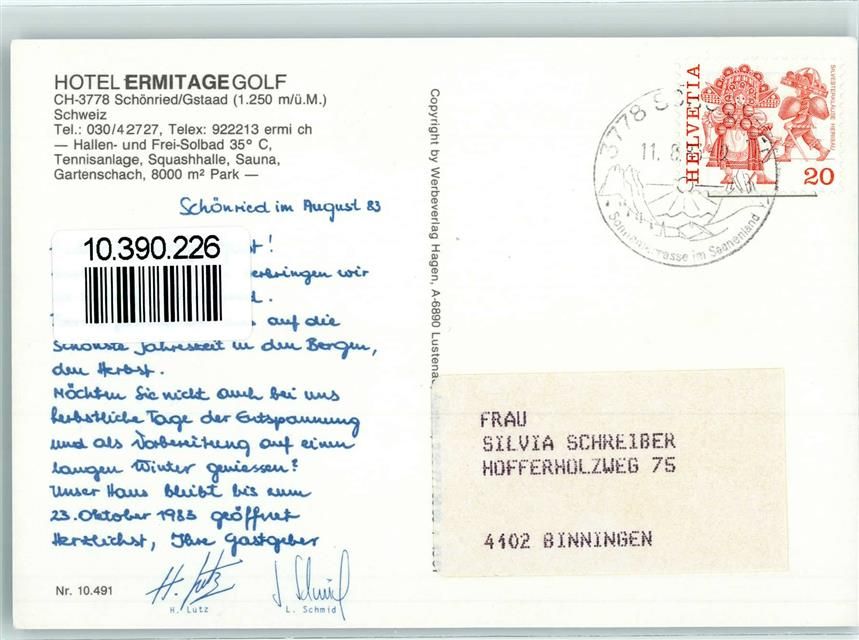 HOTEL ERMITAGE GOLF
CH-3778 Schönried/Gstaad (1.250 m/ü.M.)
Schweiz
Tel.: 030/42727, Telex: 922213 ermi ch
— Hallen- und Frei-Solbad 35° C,
Tennisanlage, Squashhalle, Sauna,
Gartenschach, 8000 m² Park —
Schönried im August 83
10.390.226
t!
erbringen wir
d.
auf die
schönste Jahreszeit in den Bergen,
den Herbst.
Möchten Sie nicht auch bei uns
herbstliche Tage der Entspannung
und als Vorbereitung auf einen
langen Winter geniessen?
Unser Haus bleibt bis zum
23. Oktober 1983 geöffnet
Herzlichst, Ihre Gastgeber
H. Lutz
L. Schmid
H. Lutz
L. Schmid
Nr. 10.491
Copyright by Werbeverlag Hagen, A-6890 Lustenau
3778
11.8.8
Sonnenterrasse im Saanenland
HELVETIA
SILVESTERKLÄUSE HERISAU
20
FRAU
SILVIA SCHREIBER
HOFFERHOLZWEG 75
4102 BINNINGEN